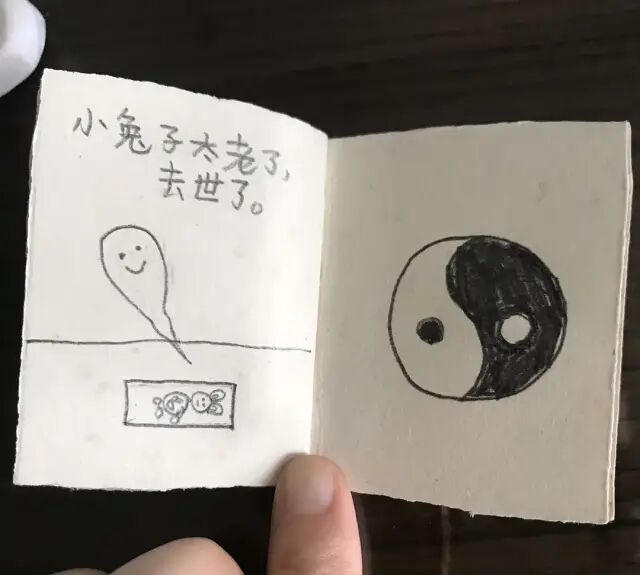 小兔子太老了,
去世了。